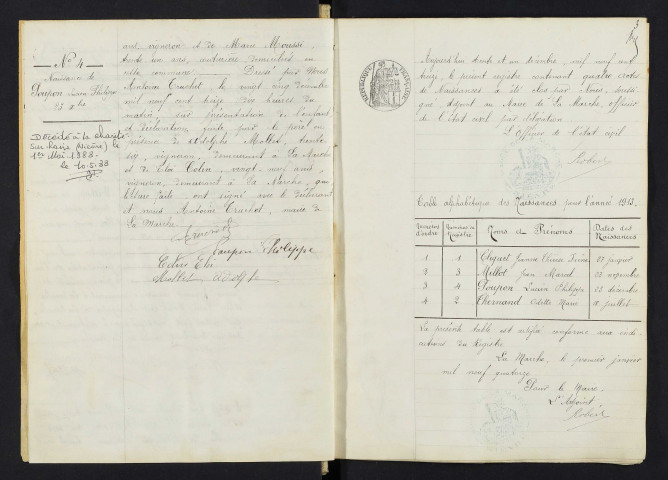 No 4
Naissance de
Poupon Lucien Philippe
Décédé à la charité
sur Loire (Nièvre) le
1er Mai 1988.
le 10.5.88
ans, vigneron et de Marie Moussé,
trente un ans, couturière, domiciliés en
cette commune. Dressé par Nous
Antoine Truchot, le vingt cinq décembre
mil neuf cent treize, dix heures du
matin, sur présentation de l'enfant
et déclaration faite par le père en
présence de Adolphe Mollet, trente
six, vigneron, demeurant à La Marche
et de Elie Colin, vingt-neuf ans,
vigneron, demeurant à La Marche, qui
lecture faite, ont signé avec le déclarant
et nous Antoine Truchot, maire de
La Marche.
Poupon Philippe
Colin Elie
Mollet Adolphe
3
RÉPUBLIQUE FRANÇAISE
Aujourd'hui trente et un décembre, neuf neuf cent
treize, le présent registre contenant quatre actes
de Naissances a été clos par Nous, délé-
gué Adjoint au Maire de La Marche, officier
de l'état civil par délégation
L'Officier de l'état civil
Robert
Table alphabétique des Naissances pour l'année 1913.
Numéros d'ordre | Numéros du Registre | Noms et Prénoms | Dates des Naissances
1 | 1 | Cliquet Jeanne | janvier
2 | 3 | Millot Jean Marcel | novembre
3 | 4 | Poupon Lucien Philippe | décembre
4 | 2 | Thernand Odette Marie | juillet
La présente table est certifiée conforme aux indi-
cations du Registre
La Marche, le premier janvier
mil neuf quatorze
Pour le Maire,
L'Adjoint
Robert